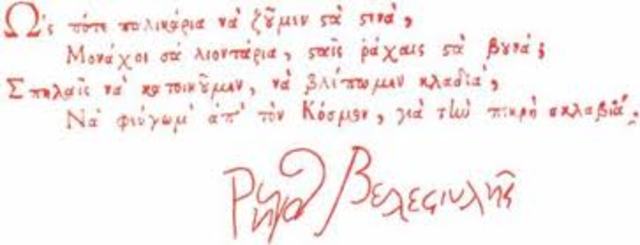 Ὡς πότε παλικάρια νὰ ζοῦμεν ςὰ ςενά,
Μονάχοι σὰ λιοντάρια, ςαῖς ῥάχαις ςὰ βουνά;
Σπηλαῖς νὰ κατοικοῦμεν, νὰ βλέπωμεν κλαδιά,
Νὰ φεύγωμ' ἀπ' τὸν Κόσμον, γιὰ τὴν πικρὴ σκλαβιά;
Ρήγας Βελεςινλῆς